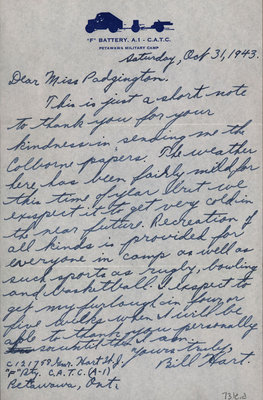 "F" BATTERY, A.1 - C.A.T.C.
PETAWAWA MILITARY CAMP
Saturday, Oct 31, 1943.
Dear Miss Padgington
This is just a short note
to thank you for your
kindness in sending me the
Colborne papers. The weather
here has been fairly mild for
this time of year but we
exspect it to get very cold in
the near future. Recreation of
all kinds is provided for
everyone in camp as well as
such sports as rugby, bowling
and basketball. I exspect to
get my furlough in four or
five weeks when I will be
able to thank you personally
so until then I am
Yours truly
Bill Hart.
C121759 Gnr. Hart W.J.
"F" Bty. C.A.T.C. (A-1)
Petawawa, Ont.